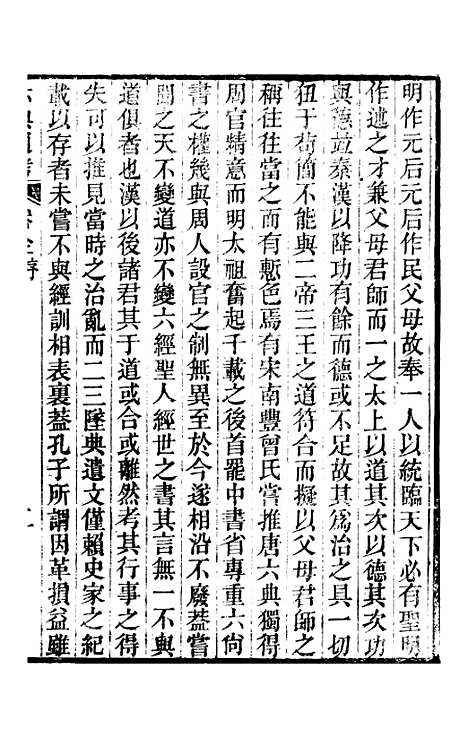 明作元后元后作民父母故奉一人以統臨天下必有聖明
作述之才兼父母君師而一之太上以道其次以德其次功
與德竝秦漢以降功有餘而德或不足故其爲治之具一切
狃于苟簡不能與二帝三王之道符合而擬以父母君師之
稱往往當之而有慙色焉有宋南豐曾氏嘗推唐六典獨得
周官精意而明太祖奮起千載之後首罷中書省專重六尙
書之權幾與周人設官之制無異至於今遂相沿不廢葢嘗
聞之天不變道亦不變六經聖人經世之書其言無一不與
道俱者也漢以後諸君其于道或合或離然考其行事之得
失可以推見當時之治亂而二三墜典遺文僅賴史家之紀
載以存者未嘗不與經訓相表裏葢孔子所謂因革損益雖